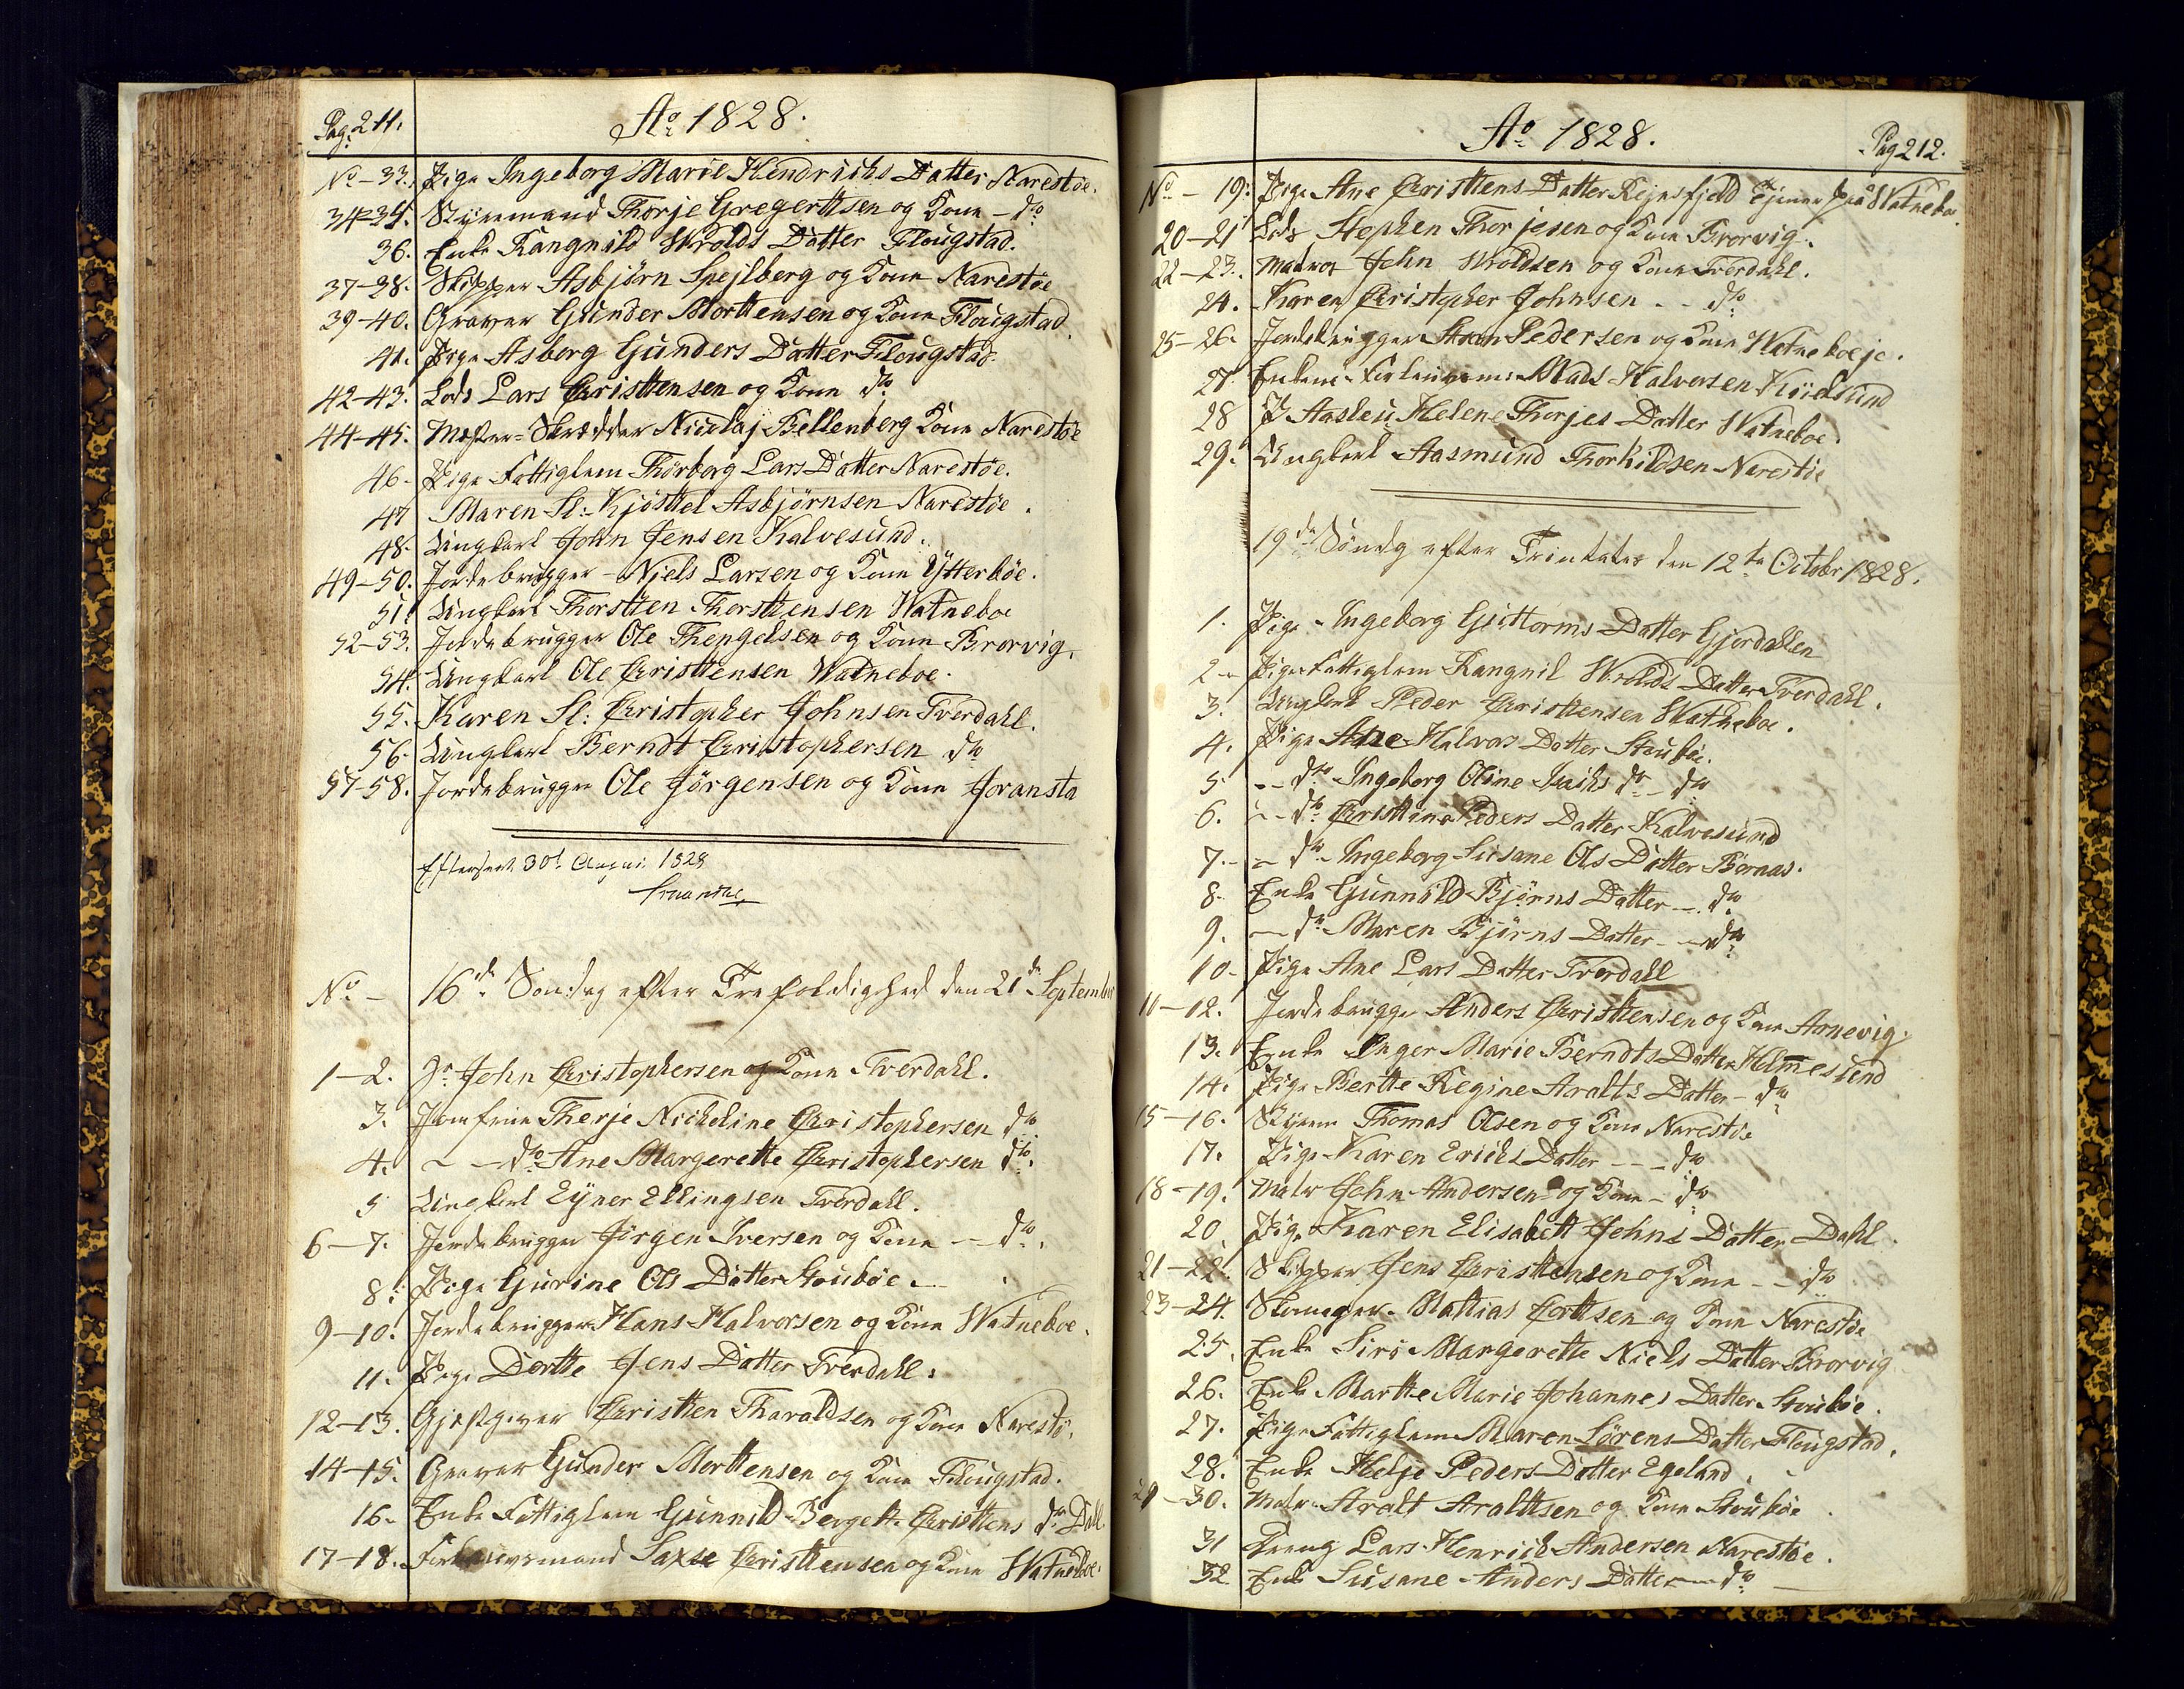 Pag: 211.
Ao 1828.
No - 33. Pige Ingeborg Marie Hendrichs Datter Narestøe.
34-35. Styrmand Thorje Gregerttsen og Kone - do
36. Enke Rangnild Wrolds Datter Flougstad.
37-38. Skipper Asbjørn Spejlberg og Kone Narestøe
39-40. Graver Gunder Morttensen og Kone Flougstad
41. Pige Asborg Gunders Datter Flougstad
42-43. Lods Lars Cristtensen og Kone do
44-45. Mester-Skrædder Nicolaj Bellenberg Kone Narestøe
46. Pige Fattiglem Thorborg Lars Datter Narestøe.
47 Maren Sl: Kjøsttel Asbjørnsen Narestøe.
48. Ungkarl John Jensen Kalvesund.
49-50. Jordebrugger - Njels Larsen og Kone Ytterbøe.
51. Ungkarl Thorstten Thorsttensen Watneboe
52-53. Jordebrugger Ole Thengelsen og Kone Brorvig.
54. Ungkarl Ole Cristtensen Watneboe.
55. Karen Sl: Cristopher Johnsen Tverdahl.
56. Ungkarl Berndt Cristophersen do
57-58. Jordebrugger Ole Jørgensen og Kone Joransta
Efterseet 30t August 1828
No - 16de Søndag efter Trefoldighed den 21de September
1-2. Hr John Cristophersen og Kone Tverdahl.
3. Jomfrue Therje Nickoline Cristophersen do
4. - - do Ane Margerette Cristophersen do.
5 Ungkarl Ejner Ellingsen Tverdahl.
6-7. Jordebrugger Jørgen Iversen og Kone - do.
8. Pige Gurine Ols Datter Stoubøe.
9-10. Jordebrugger Hans Halvorsen og Kone Watneboe.
11. Pige Dortte Jens Datter Tverdahl.
12-13. Gjæstgiver Cristten Tharaldsen og Kone Narestø.
14-15. Graver Gunder Morttensen og Kone Flougstad.
16. Enke Fattiglem Gunnild Bergett Cristtens dr Dall
17-18. Forligelsmand Saxse Cristtensen og Kone Watneboe.
Ao 1828.
Pag 212.
No - 19. Pige Ane Cristtens Datter Rejersfjeld Tjener paa Watneboe
20-21 Lods Stephen Thorjesen og Kone Brorvig.
22-23. Matros John Wroldsen og Kone Tverdahl.
24. Karen Cristopher Johnsen - - do
25-26. Jordebrugger Sten Pedersen og Kone Watneboeje.
27. Mads Halvorsen
28 P Aaslou Helene Thorjes Datter Watneboe.
29. Ungkarl Aasmund Thorkildsen Narestøe
19de Søndg efter Trinitatis den 12te Octobr 1828.
1. Pige - Ingeborg Guttorms Datter Gjerdallen
2 - Pige Fattiglem Rangnil Wrolds Datter Tverdahl.
3. Ungkarl Peder Cristtensen Watneboe.
4. Pige Ane Halvors Datter Stoubø.
5 - - do Ingeborg Oline Isaiks dr - do
6. - - do Cristtine Peders Datter Kalvesund
7. - - do - Ingeborg Susane Ols Datter Børnas.
8. Enke Gunnild Bjørns Datter - do
9. - do Maren Bjørns Datter - - do
10 - Pige Ane Lars Datter Tverdall
11-12. Jordebrugge Anders Cristtensen og Kone Arnevig.
13. Enke Inger Marie Berndts Datter Helmesund
14. Pige Bertte Regine Aralts Datter - do
15-16. Styrm Thomas Olsen og Kone Narestøe
17. Pige Karen Erichs Datter - - - do
18-19. Matr John Andersen og Kone - do
20 Pige Karen Elisabett Johns Datter Dahl.
21-22. Skipper Jens Cristtensen og Kone - - do
23-24. Skomager Mattias Corttsen og Kone Narestøe
25. Enke Siri Margerette Niels Datter Brorvig
26. Enke Martte Marie Johannes Datter Stoubøe.
27. Pige Fattiglem Maren Sørens Datter Flougstad.
28. Enke Helje Peders Datter Egeland.
29-30. Matr Aralt Aralttsen og Kone Stoubøe
31 Dreng Lars Henrich Andersen Narestøe.
32 Enke Susane Anders Datter - do